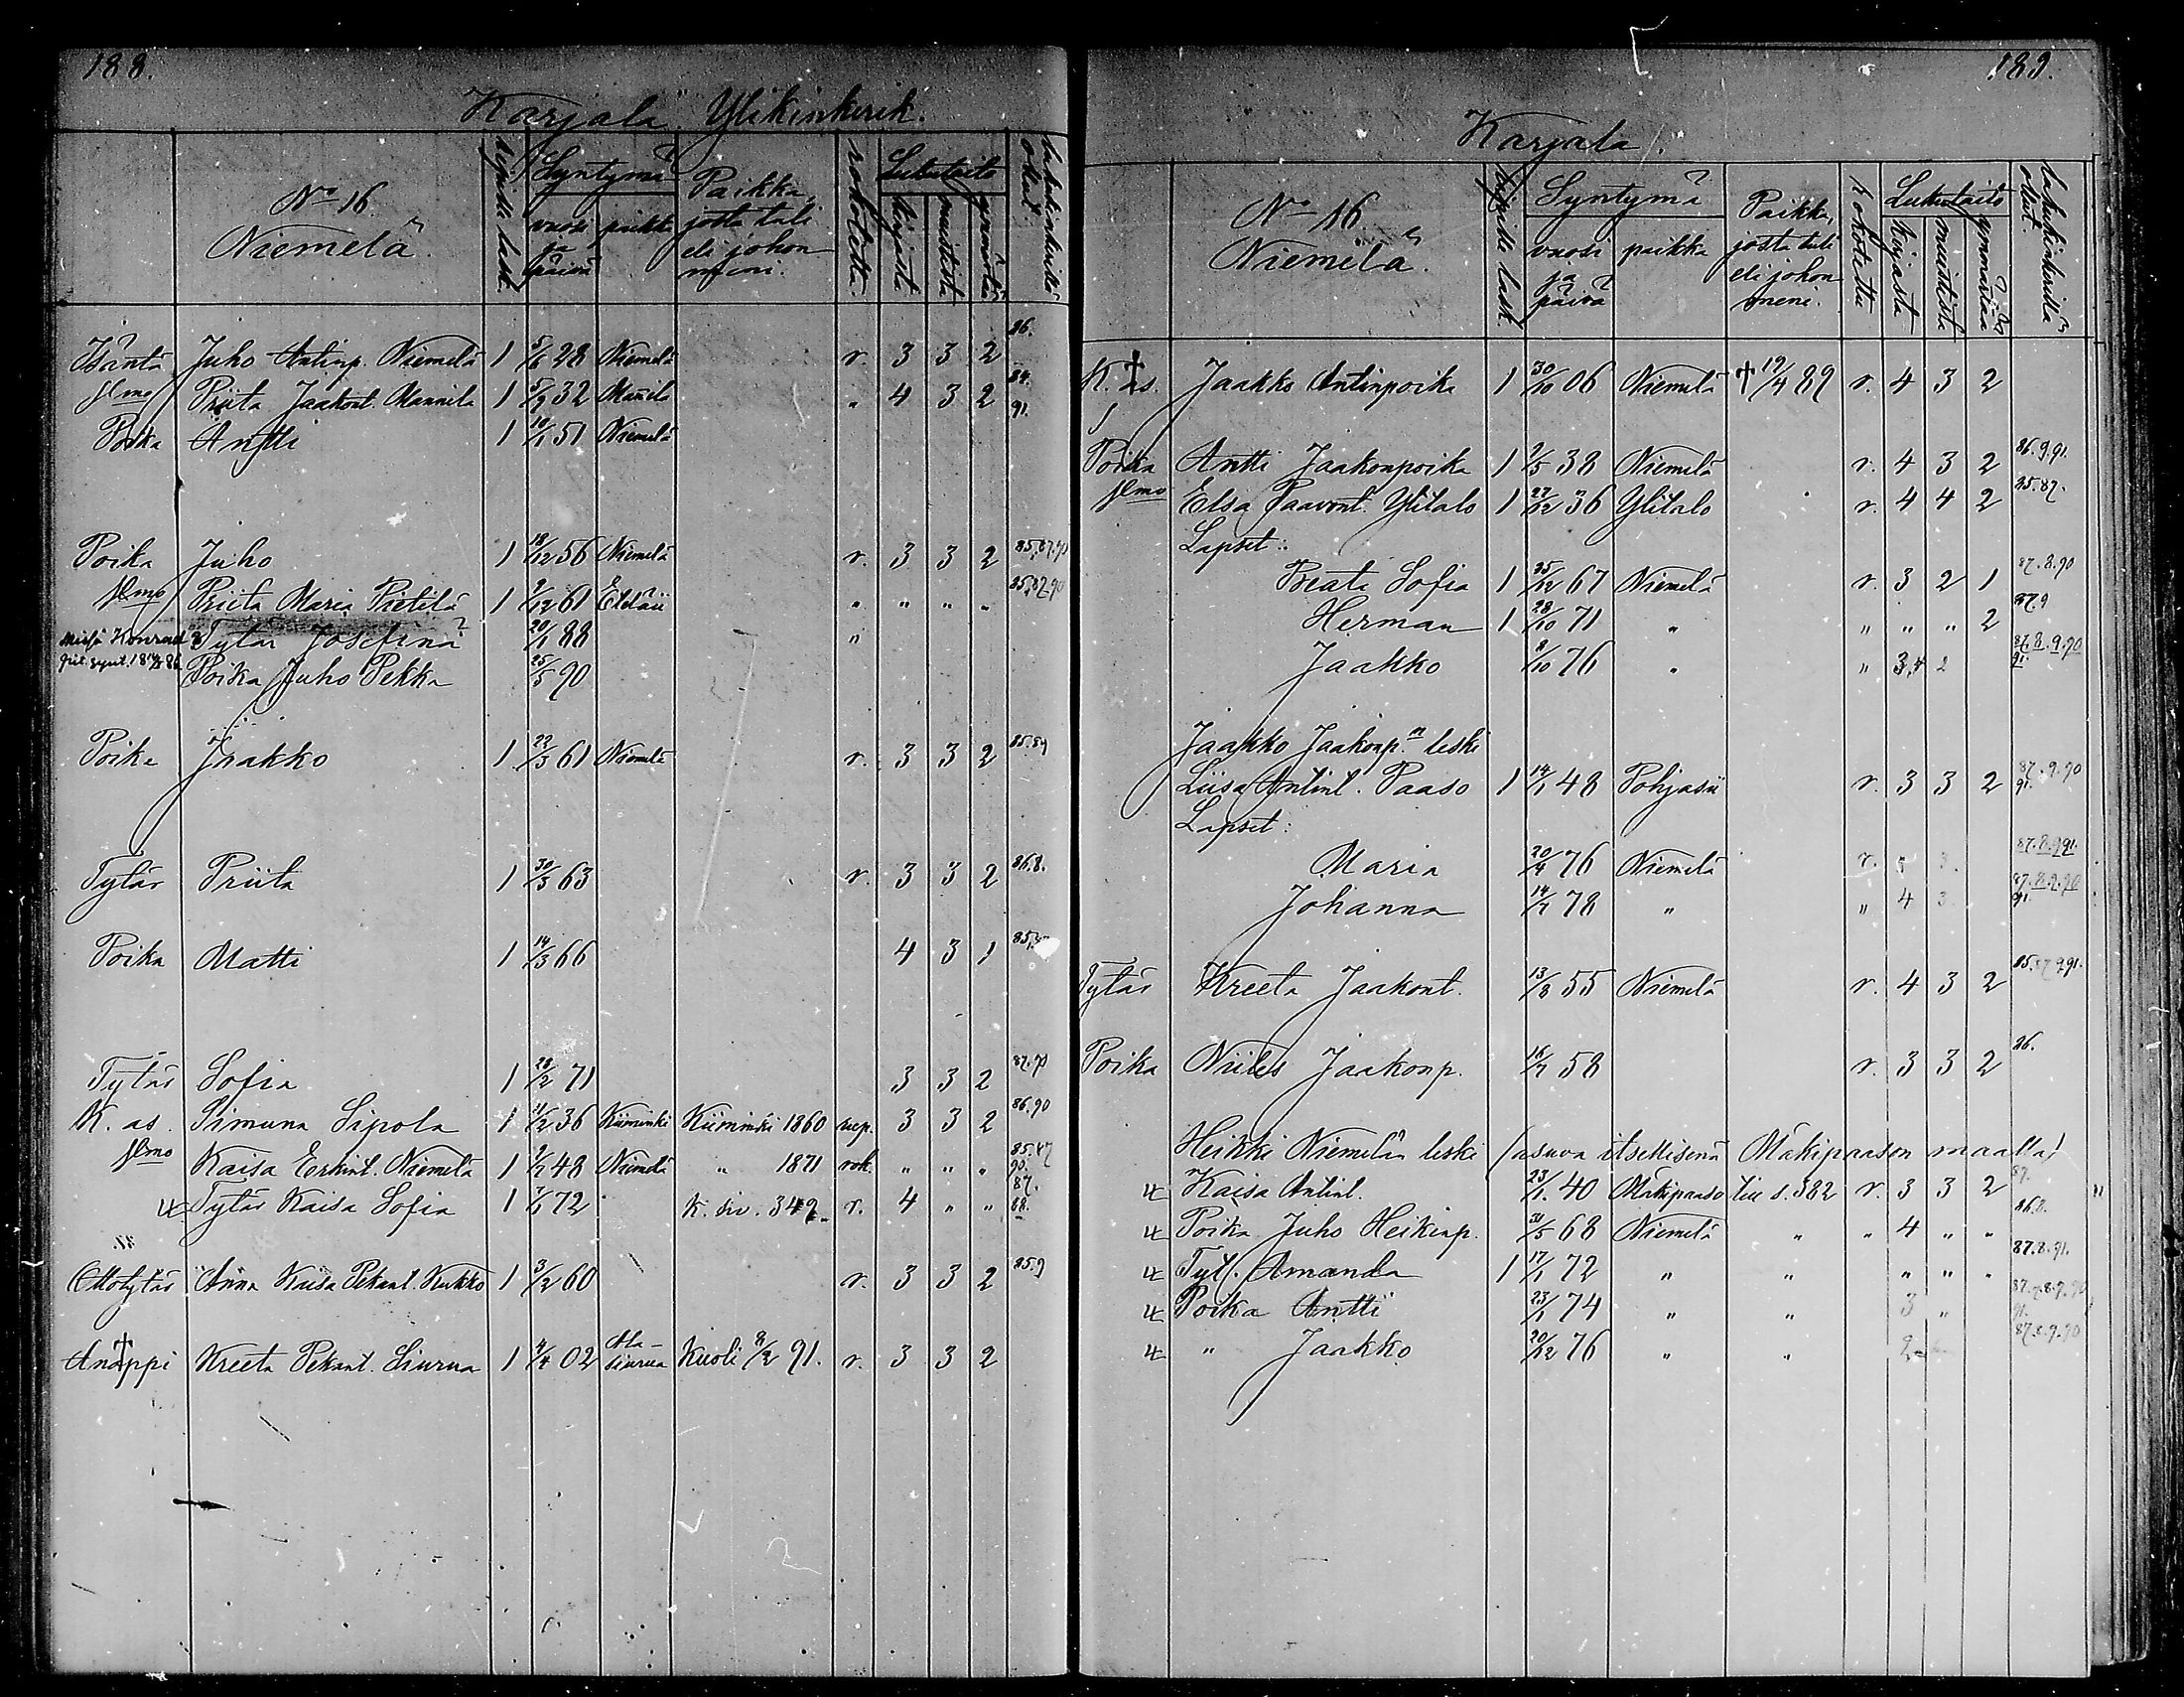 188.
Karjala Ylikinkerik.
No 16.
Niemelä.
Syntymä
vuosi ja päivä
paikka
Paikka, josta tuli eli johon meni.
rokotettu.
Lukutaito
kirjasta
muistista
ymmärtää
lukukinkerillä ollut.
Isäntä Juho Antinp. Niemelä 1 5/6 28 Niemelä r. 3 3 2 86.
Priita Jaakont. Mannila 1 5/9 32 Mañila " 4 3 2 91.
Poika Antti 1 10/1 51 Niemelä
Poika Juho 1 18/12 56 Niemelä r. 3 3 2 85.87.90
Priita Maria Pietilä 1 9/12 61 " " " "
Tytär Josefina 20/1 88 "
Poika Juho Pekka 25/5 90
Poika Jaakko 1 22/3 61 Niemelä r. 3 3 2
Tytär Priita 1 30/3 63 r. 3 3 2 86.8.
Poika Matti 1 14/3 66 4 3 1
Tytär Sofia 1 28/2 71 3 3 2 87.90
K. as. Simuna Sipola 1 21/2 36 Kiiminki Kiiminki 1860 3 3 2 86.90
Kaisa Eerkint. Niemelä 1 48 Niemelä " 1871 rok. " " "
Tytär Kaisa Sofia 1 7/1 72 K. siv. 342. r. 4 " " 87. 88.
Ottotytär Anna Kaisa Pekant. Kukko 1 3/2 60 r. 3 3 2 85.9
Anoppi Kreeta Pekant. Siurua 1 4/4 02 Ala-siurua Kuoli 8/2 91. r. 3 3 2
189.
Karjala.
No 16.
Niemelä.
Syntymä
vuosi ja päivä
paikka
Paikka, josta tuli eli johon meni.
rokotettu
Lukutaito
kirjasta
muistista
ymmärtää
lukukinkerillä ollut.
K. as. Jaakko Antinpoika 1 30/10 06 Niemelä † 19/4 89 r. 4 3 2
Poika Antti Jaakonpoika 1 2/5 38 Niemelä r. 4 3 2 86.9.91.
Elsa Paavont. Ylitalo 1 27/12 36 Ylitalo r. 4 4 2 85.87.
Lapset:
Beata Sofia 1 25/12 67 Niemelä r. 3 2 1 87.8.90
Herman 1 28/10 71 " " " " 2 87.9
Jaakko 8/10 76 " " 3,4 2 87.8.9.90 91.
Jaakko Jaakonp:n leski
Liisa Antint. Paaso 1 14/1 48 Pohjasii r. 3 3 2 87.9.90 91.
Lapset:
Maria 20/4 76 Niemelä r. 3. 87.8.9.91.
Johanna 14/7 78 " " 4 3 87.8.9.90 91.
Tytär Kreeta Jaakont. 13/8 55 Niemelä r. 4 3 2
Poika Niiles Jaakonp. 16/7 58 r. 3 3 2 86.
Heikki Niemelän leski (asuva itsellisenä Mäkipaason maalla)
Kaisa Antint. 23/1 40 Mäkipaaso s. 382 r. 3 3 2 87.
Poika Juho Heikinp. 31/5 68 Niemelä " " 4 " " 86.8.
Tyt. Amanda 1 17/1 72 " " " " " 87.8.91.
Poika Antti 23/1 74 " " 3 "
" Jaakko 20/12 76 " " 2 87.8.9.90